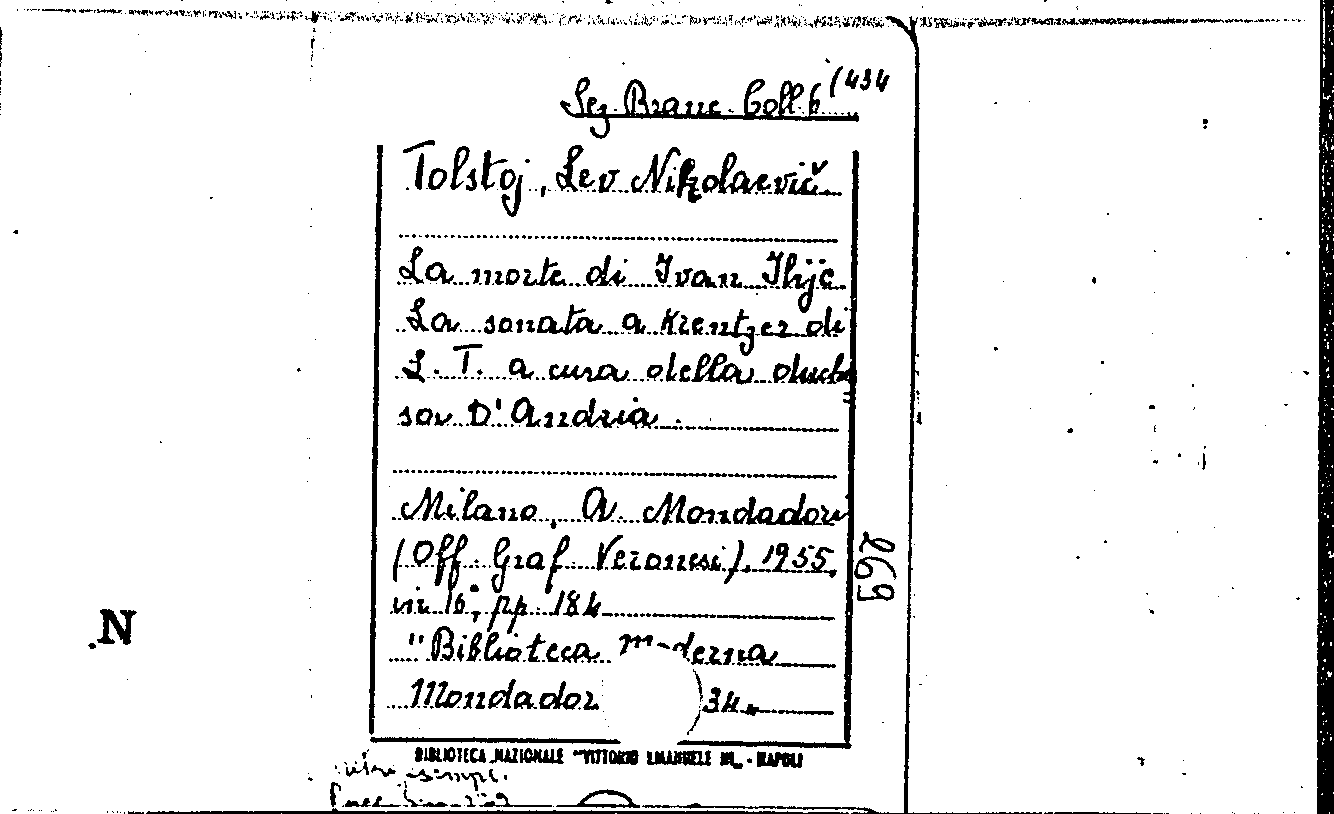 Sez. Branc. Coll. 6 /434
Tolstoj, Lev Nikolaevič
La morte di Ivan Ilijc
La sonata a Kreutzer di
L. T. a cura della duches
sa D'Andria.
Milano, A. Mondadori
(Off. Graf. Veronesi), 1955,
in 16°, pp. 184
"Biblioteca moderna
Mondadori 34"
692
N
BIBLIOTECA NAZIONALE "VITTORIO EMANUELE III" - NAPOLI